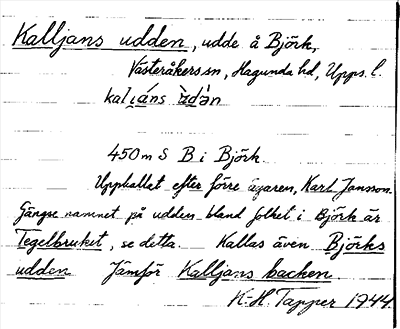 Kalljans udden, udde å Björk,
Västeråkers sn, Hagunda hd, Upps. l.
450 m S B i Björk.
Uppkallat efter förre ägaren, Karl Jansson.
Gängse namnet på udden bland folket i Björk är
Tegelbruket, se detta. Kallas även Björks
udden Jämför Kalljans backen.
K-H. Tapper 1944